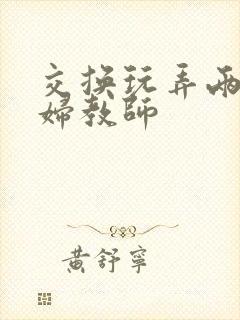 交換玩弄兩
婦教師
黃舒寧